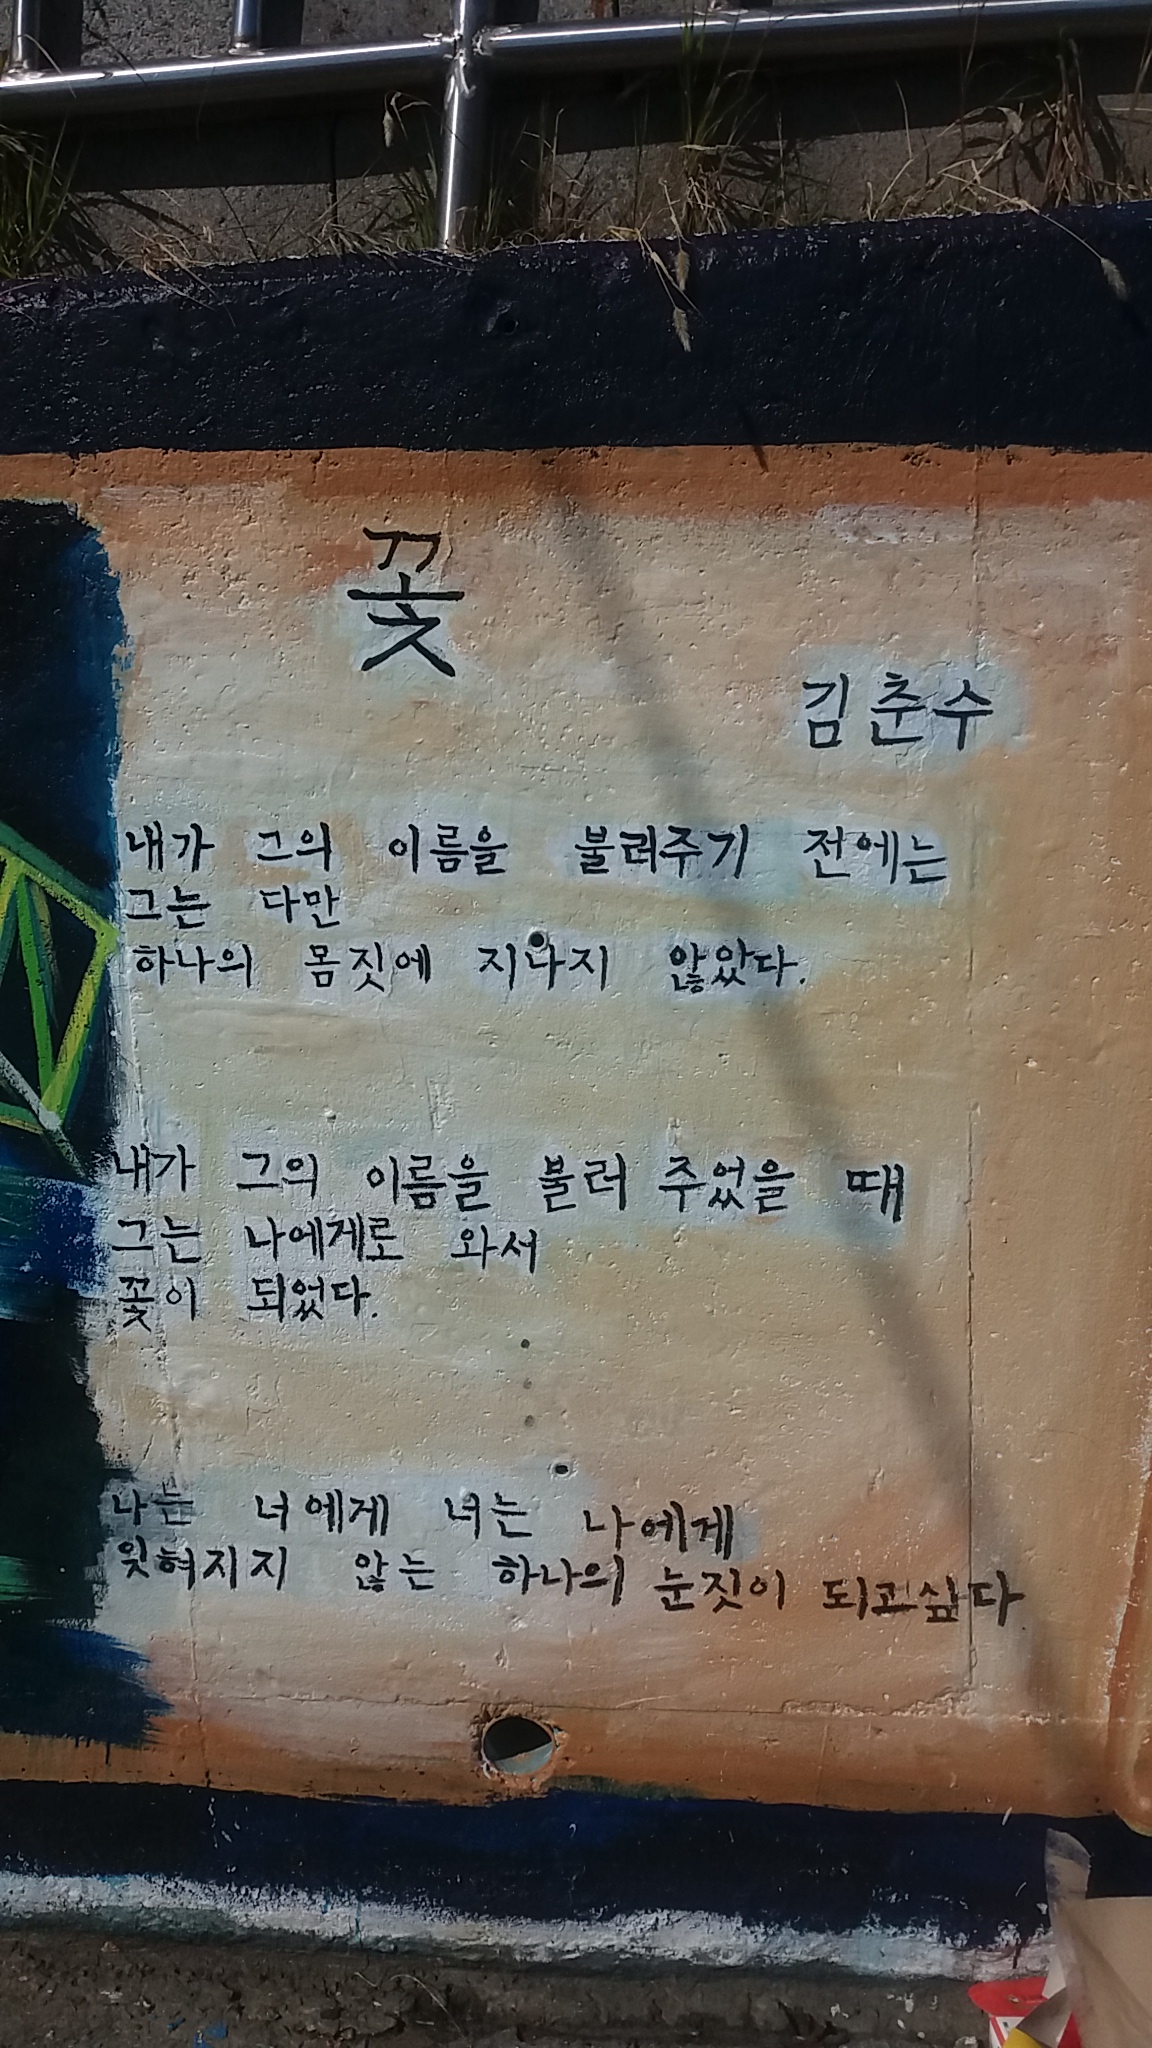 꽃
김춘수
내가 그의 이름을 불러주기 전에는
그는 다만
하나의 몸짓에 지나지 않았다.
내가 그의 이름을 불러 주었을 때
그는 나에게로 와서
꽃이 되었다.
나는 너에게 너는 나에게
잊혀지지 않는 하나의 눈짓이 되고싶다